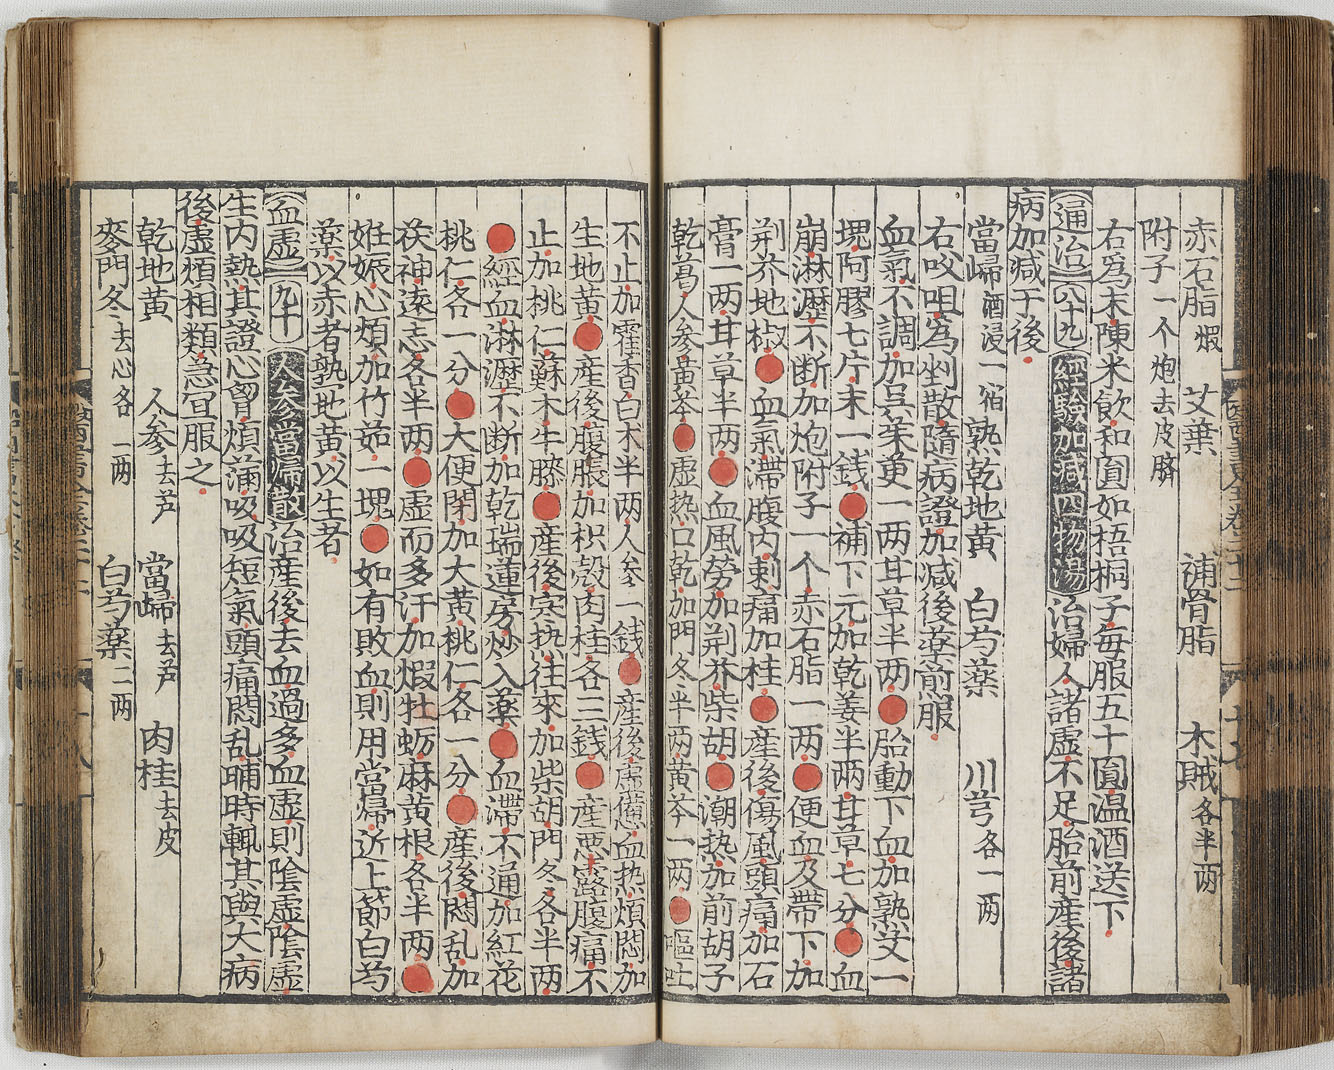 赤石脂煆 艾葉 補骨脂 木賊各半两
附子一个炮去皮臍
右爲末陳米飲和圓如梧桐子每服五十圓温酒送下
通治 八十九 經驗加減四物湯 治婦人諸虚不足胎前産後諸
病加減于後
當歸酒浸一宿 熟乾地黄 白芍藥 川芎各一两
右㕮咀為剉散隨病證加減後藥前服
血氣不調加吴茱萸一两甘草半两 胎動下血加熟艾一
塊阿膠七片末一錢 補下元加乾姜半两甘草七分 血
崩淋瀝不断加炮附子一个赤石脂一两 便血及帶下加
荆芥地椒 血氣滞腹内刺痛加桂 産後傷風頭痛加石
膏一两甘草半两 血風勞加荆芥柴胡 潮热加前胡子
乾葛人參黄芩 虚热口乾加門冬半两黄芩一两 嘔吐
不止加霍香白术半两人參一錢 産後虚憊血热煩悶加
生地黄 産後腹脹加枳殻肉桂各三錢 産惡露腹痛不
止加桃仁蘇木牛膝 産後寒热往來加柴胡門冬各半两
經血淋瀝不断加乾瑞蓮房炒入藥 血滞不通加紅花
桃仁各一分 大便閉加大黄桃仁各一分 産後悶乱加
茯神遠志各半两 虚而多汗加煆牡蛎麻黄根各半两
姙娠心煩加竹茹一塊 如有敗血則用當歸近上節白芍
藥以赤者熟地黄以生者
血虚 九十 人參當歸散 治産後去血過多血虚則陰虚陰虚
生内熱其證心胷煩滿吸吸短氣頭痛悶乱晡時輒甚與大病
後虚煩相類急宜服之
乾地黄 人參去芦 當歸去芦 肉桂去皮
麥門冬去心各一两 白芍藥二两